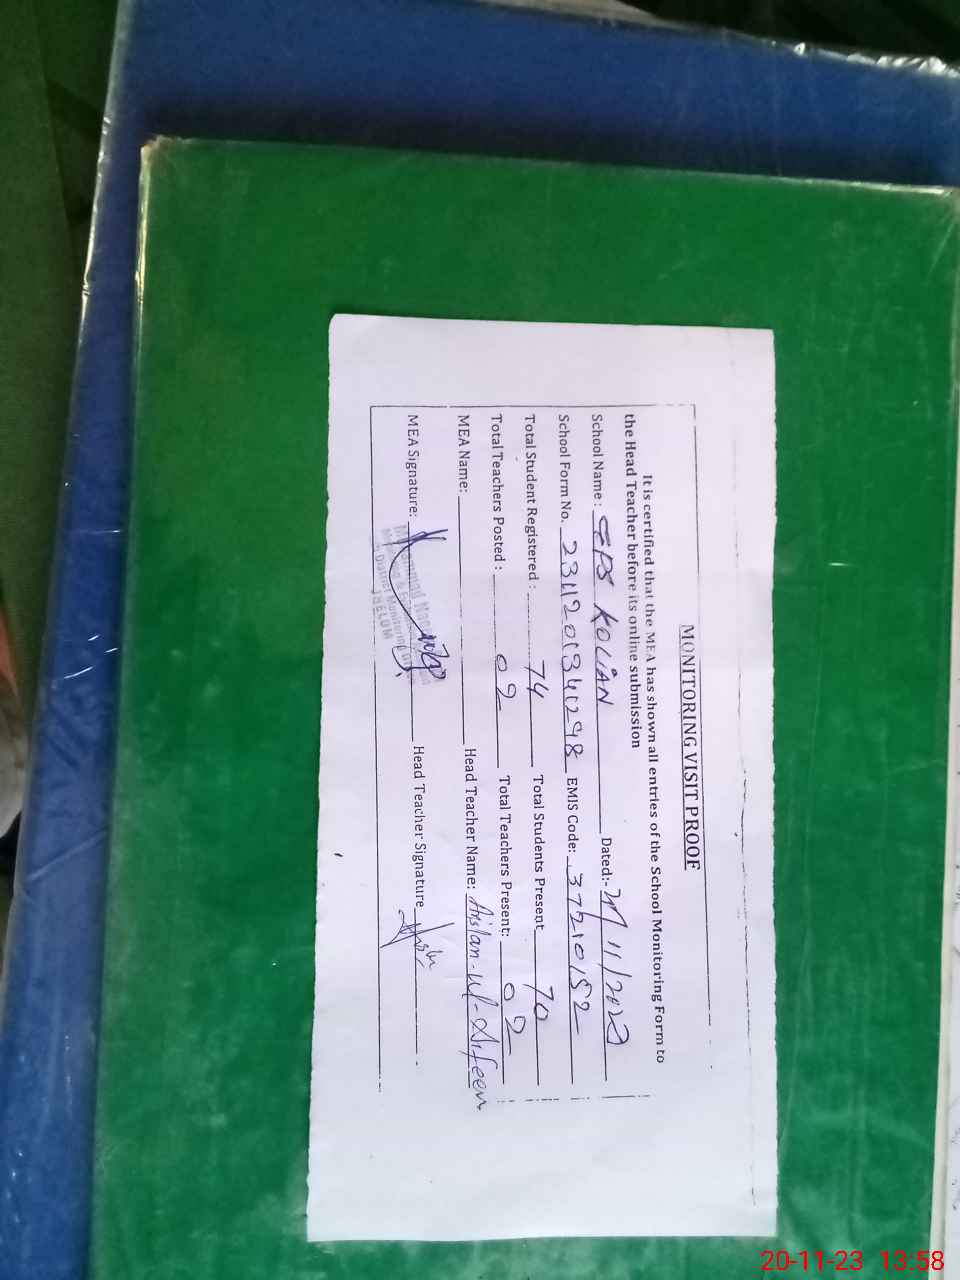 MONITORING VISIT PROOF
It is certified that the MEA has shown all entries of the School Monitoring Form to
the Head Teacher before its online submission
School Name : GPS KOLIAN Dated:- /11/2023
School Form No. EMIS Code: 37210152
Total Student Registered : 74 Total Students Present 70
Total Teachers Posted : 02 Total Teachers Present: 02
MEA Name: Head Teacher Name: Arslan-ul-Arifeen
MEA Signature: Head Teacher Signature
District Monitoring
JHELUM
20-11-23 13:58